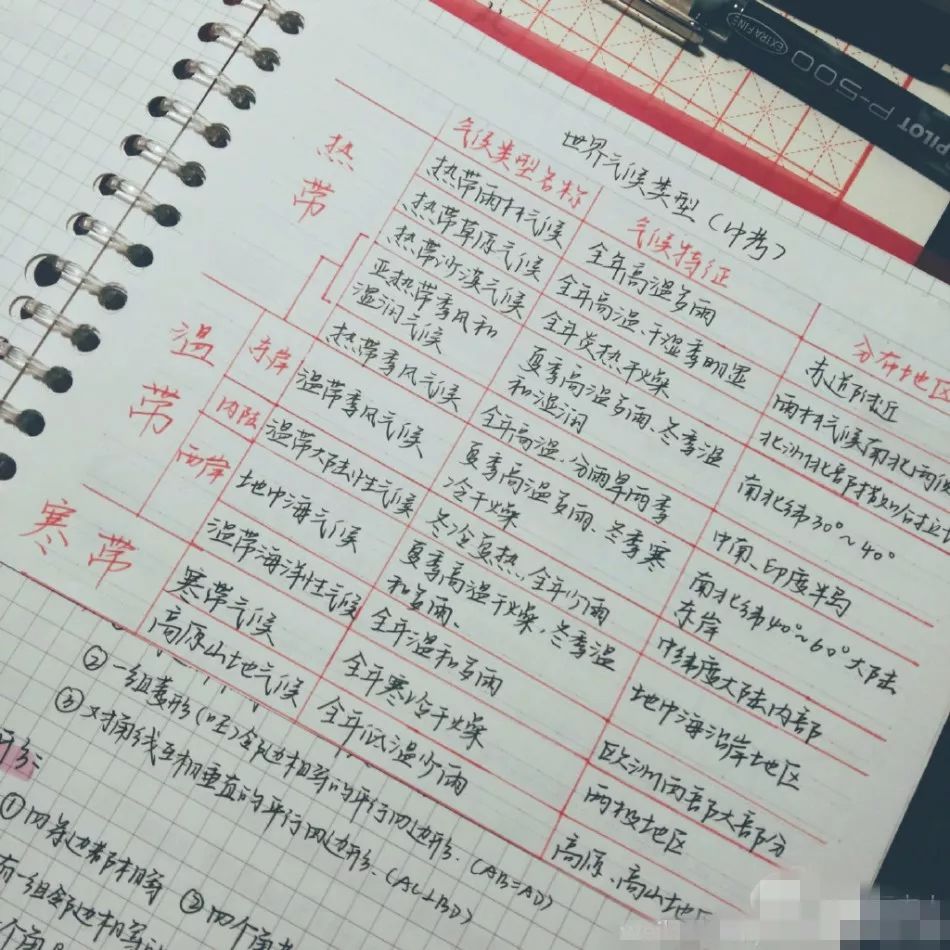 PILOT P-500 EXTRA FINE
世界气候类型（中考）
气候类型名称 气候特征 分布地区
热带
热带雨林气候 全年高温多雨 赤道附近
热带草原气候 全年高温、干湿季明显 雨林气候南北两侧
热带沙漠气候 全年炎热干燥 北洲北部撒哈拉
亚热带季风和
湿润气候
夏季高温多雨、冬季温
和湿润
南北纬30°~40°
热带季风气候 全年高温，分雨旱两季 中南、印度半岛
温带
东岸 温带季风气候
夏季高温多雨、冬季寒
冷干燥
南北纬40°~60°大陆
东岸
内陆 温带大陆性气候 冬冷夏热、全年少雨 中纬度大陆内部
西岸 地中海气候
夏季高温干燥，冬季温
和多雨、
地中海沿岸地区
温带海洋性气候 全年温和多雨 欧洲西部大部分
寒带
寒带气候 全年寒冷干燥 两极地区
高原山地气候 全年低温少雨 高原、高山地区
②一组菱形（叱）邻边相等的平行四边形．（AB=AD）
③对角线互相垂直的平行四边形．（AC⊥BD）
①四条边都相等 ②四个角
有一组邻边相等
个角